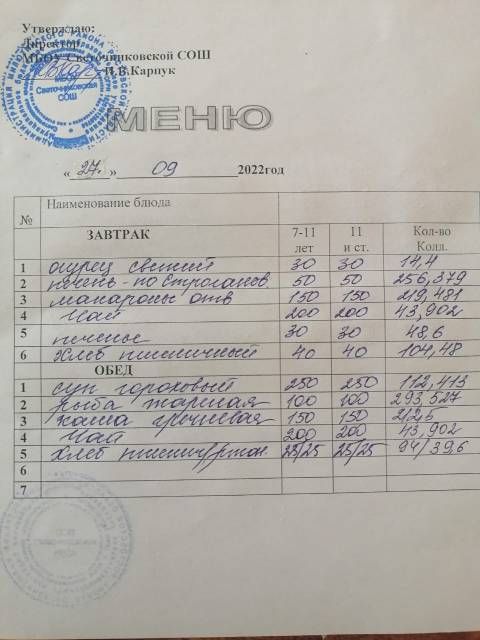 Утверждаю:
Директор
МБОУ Светочниковской СОШ
И.В.Карпук
Светочниковская
СОШ
МЕНЮ
« 27. » 09 2022год
№ Наименование блюда
ЗАВТРАК 7-11 лет 11 и ст. Кол-во Колл.
1 огурец свежий 30 30 14,4
2 печень-по строганов. 50 50 256,379
3 макароны отв 150 150 219,481
4 Чай 200 200 43,902
5 печенье 30 30 48,6
6 Хлеб пшеничный 40 40 104,48
ОБЕД
1 суп гороховый 250 250 112,413
2 рыба жареная 100 100 293,527
3 каша гречневая 150 150 2/25
4 Чай 200 200 43,902
5 Хлеб 25/25 25/25 94/39,6
6
7